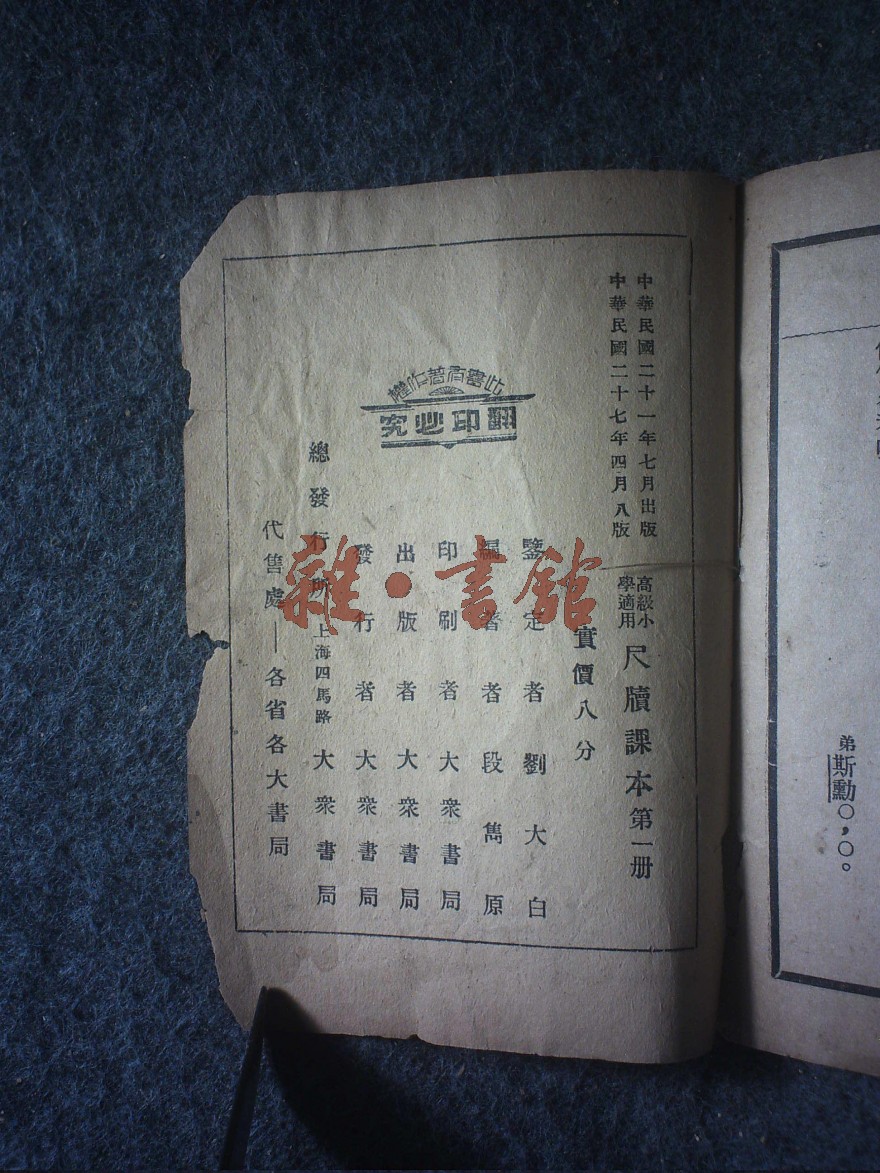 中華民國二十一年七月出版
中華民國二十七年四月八版
高級小學適用 尺牘課本第一册
實價八分
鑒定者 劉大白
編著者 段雋原
印刷者 大衆書局
出版者 大衆書局
發行者 大衆書局
總發行所 上海四馬路 大衆書局
代售處——各省各大書局
此書有著作權
翻印必究
雜·書館
弟斯勳○，○。